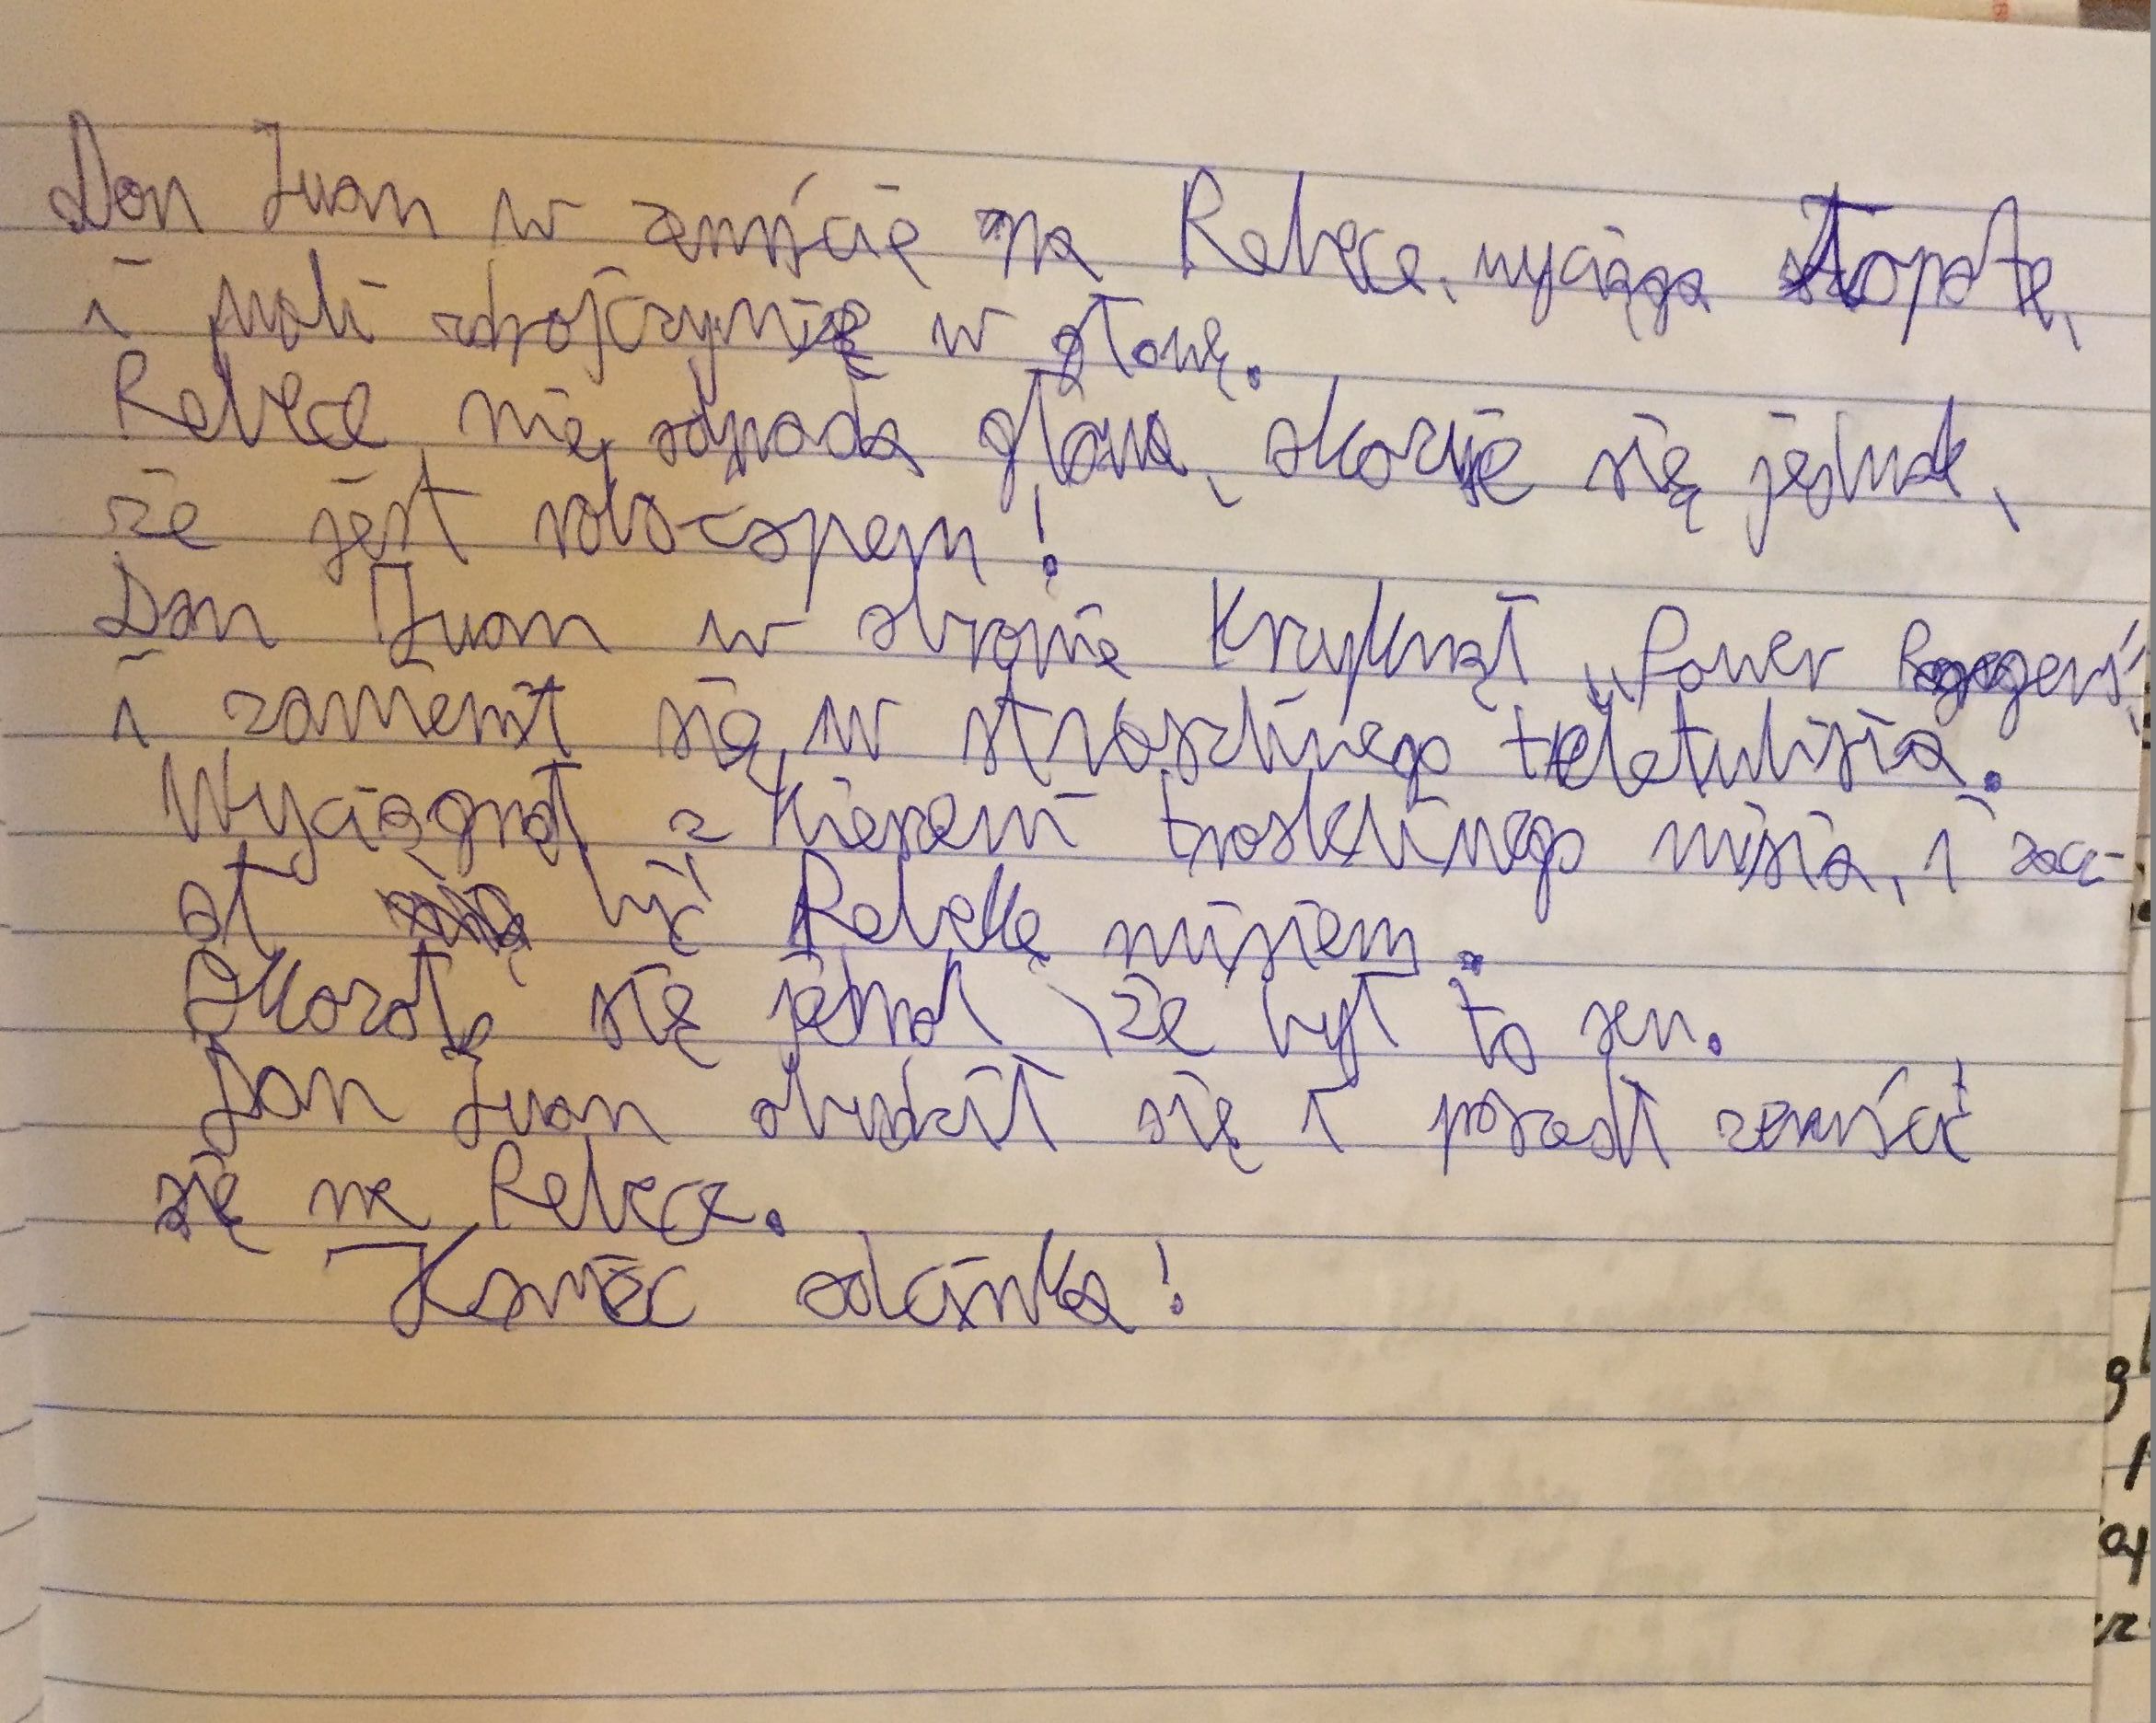 Don Juan w zemście na Rebece, wyciąga łopatę,
i wali zbójczynię w głowę.
Rebece nie odpada głowa, okazuje się jednak,
że jest robocopem!
Don Juan w obronie krzyknął „Power Rangers”,
i zamienił się w straszliwego teletubisia.
Wyciągnął z kieszeni troskliwego misia, i zacz-
ął bić Rebekę misiem.
Okazało się jednak, że był to sen.
Don Juan obudził się i poszedł zemścić
się na Rebece.
Koniec odcinka!